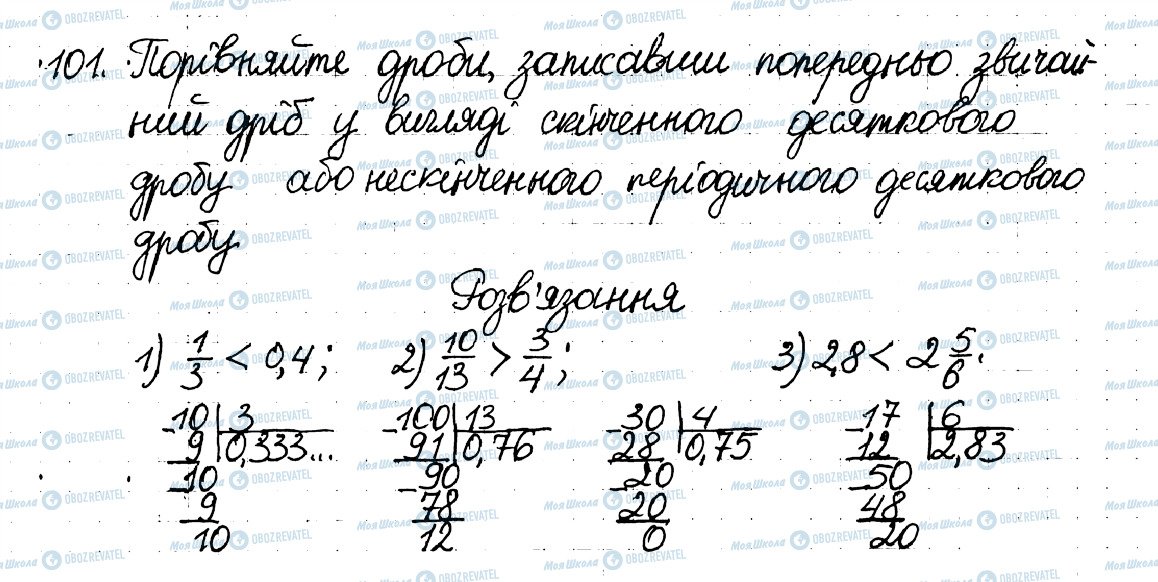 101. Порівняйте дроби, записавши попередньо звичай-
ний дріб у вигляді скінченного десяткового
дробу або нескінченного періодичного десяткового
дробу.
Розв'язання
1) 1/3 < 0,4; 2) 10/13 > 3/4; 3) 2,8 < 2 5/6.
-10 | 3 -100 | 13 -30 | 4 -17 | 6
9 | 0,333... 91 | 0,76 28 | 0,75 12 | 2,83
-10 -90 -20 -50
9 78 20 48
10 12 0 20
Моя Школа OBOZREVATEL